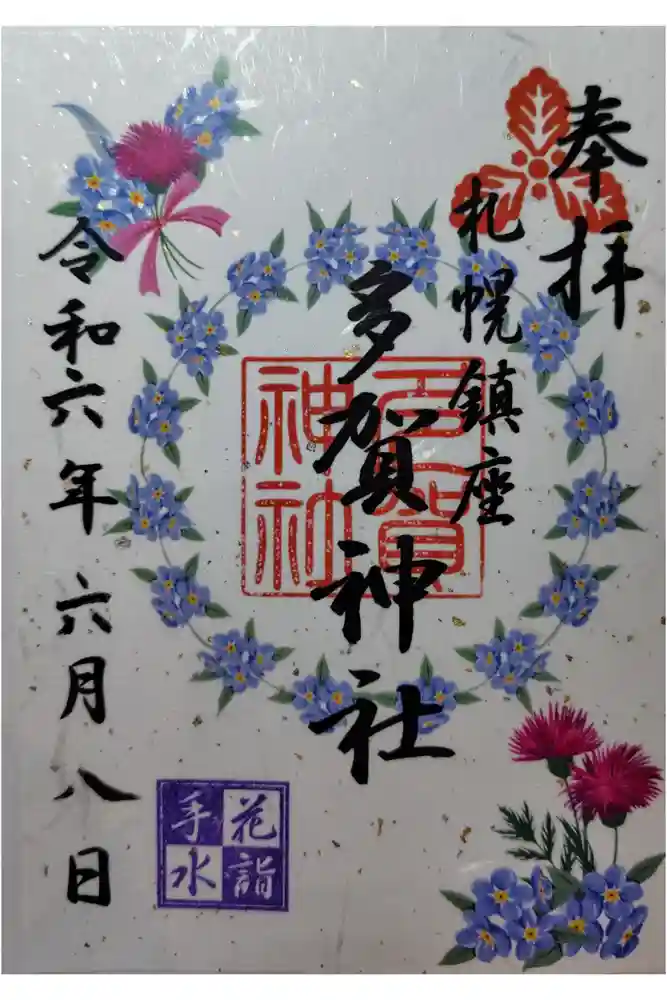 奉拝
札幌鎮座
多賀神社
多賀神社
令和六年六月八日
花詣
手水